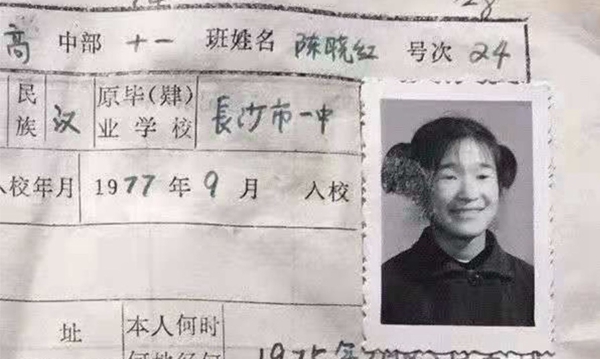 28
高 中部 十一 班姓名 陈晓红 号次 24
民族 汉 原毕(肄)业学校 長沙市一中
入校年月 1977年9月 入校
址 本人何时
1975年